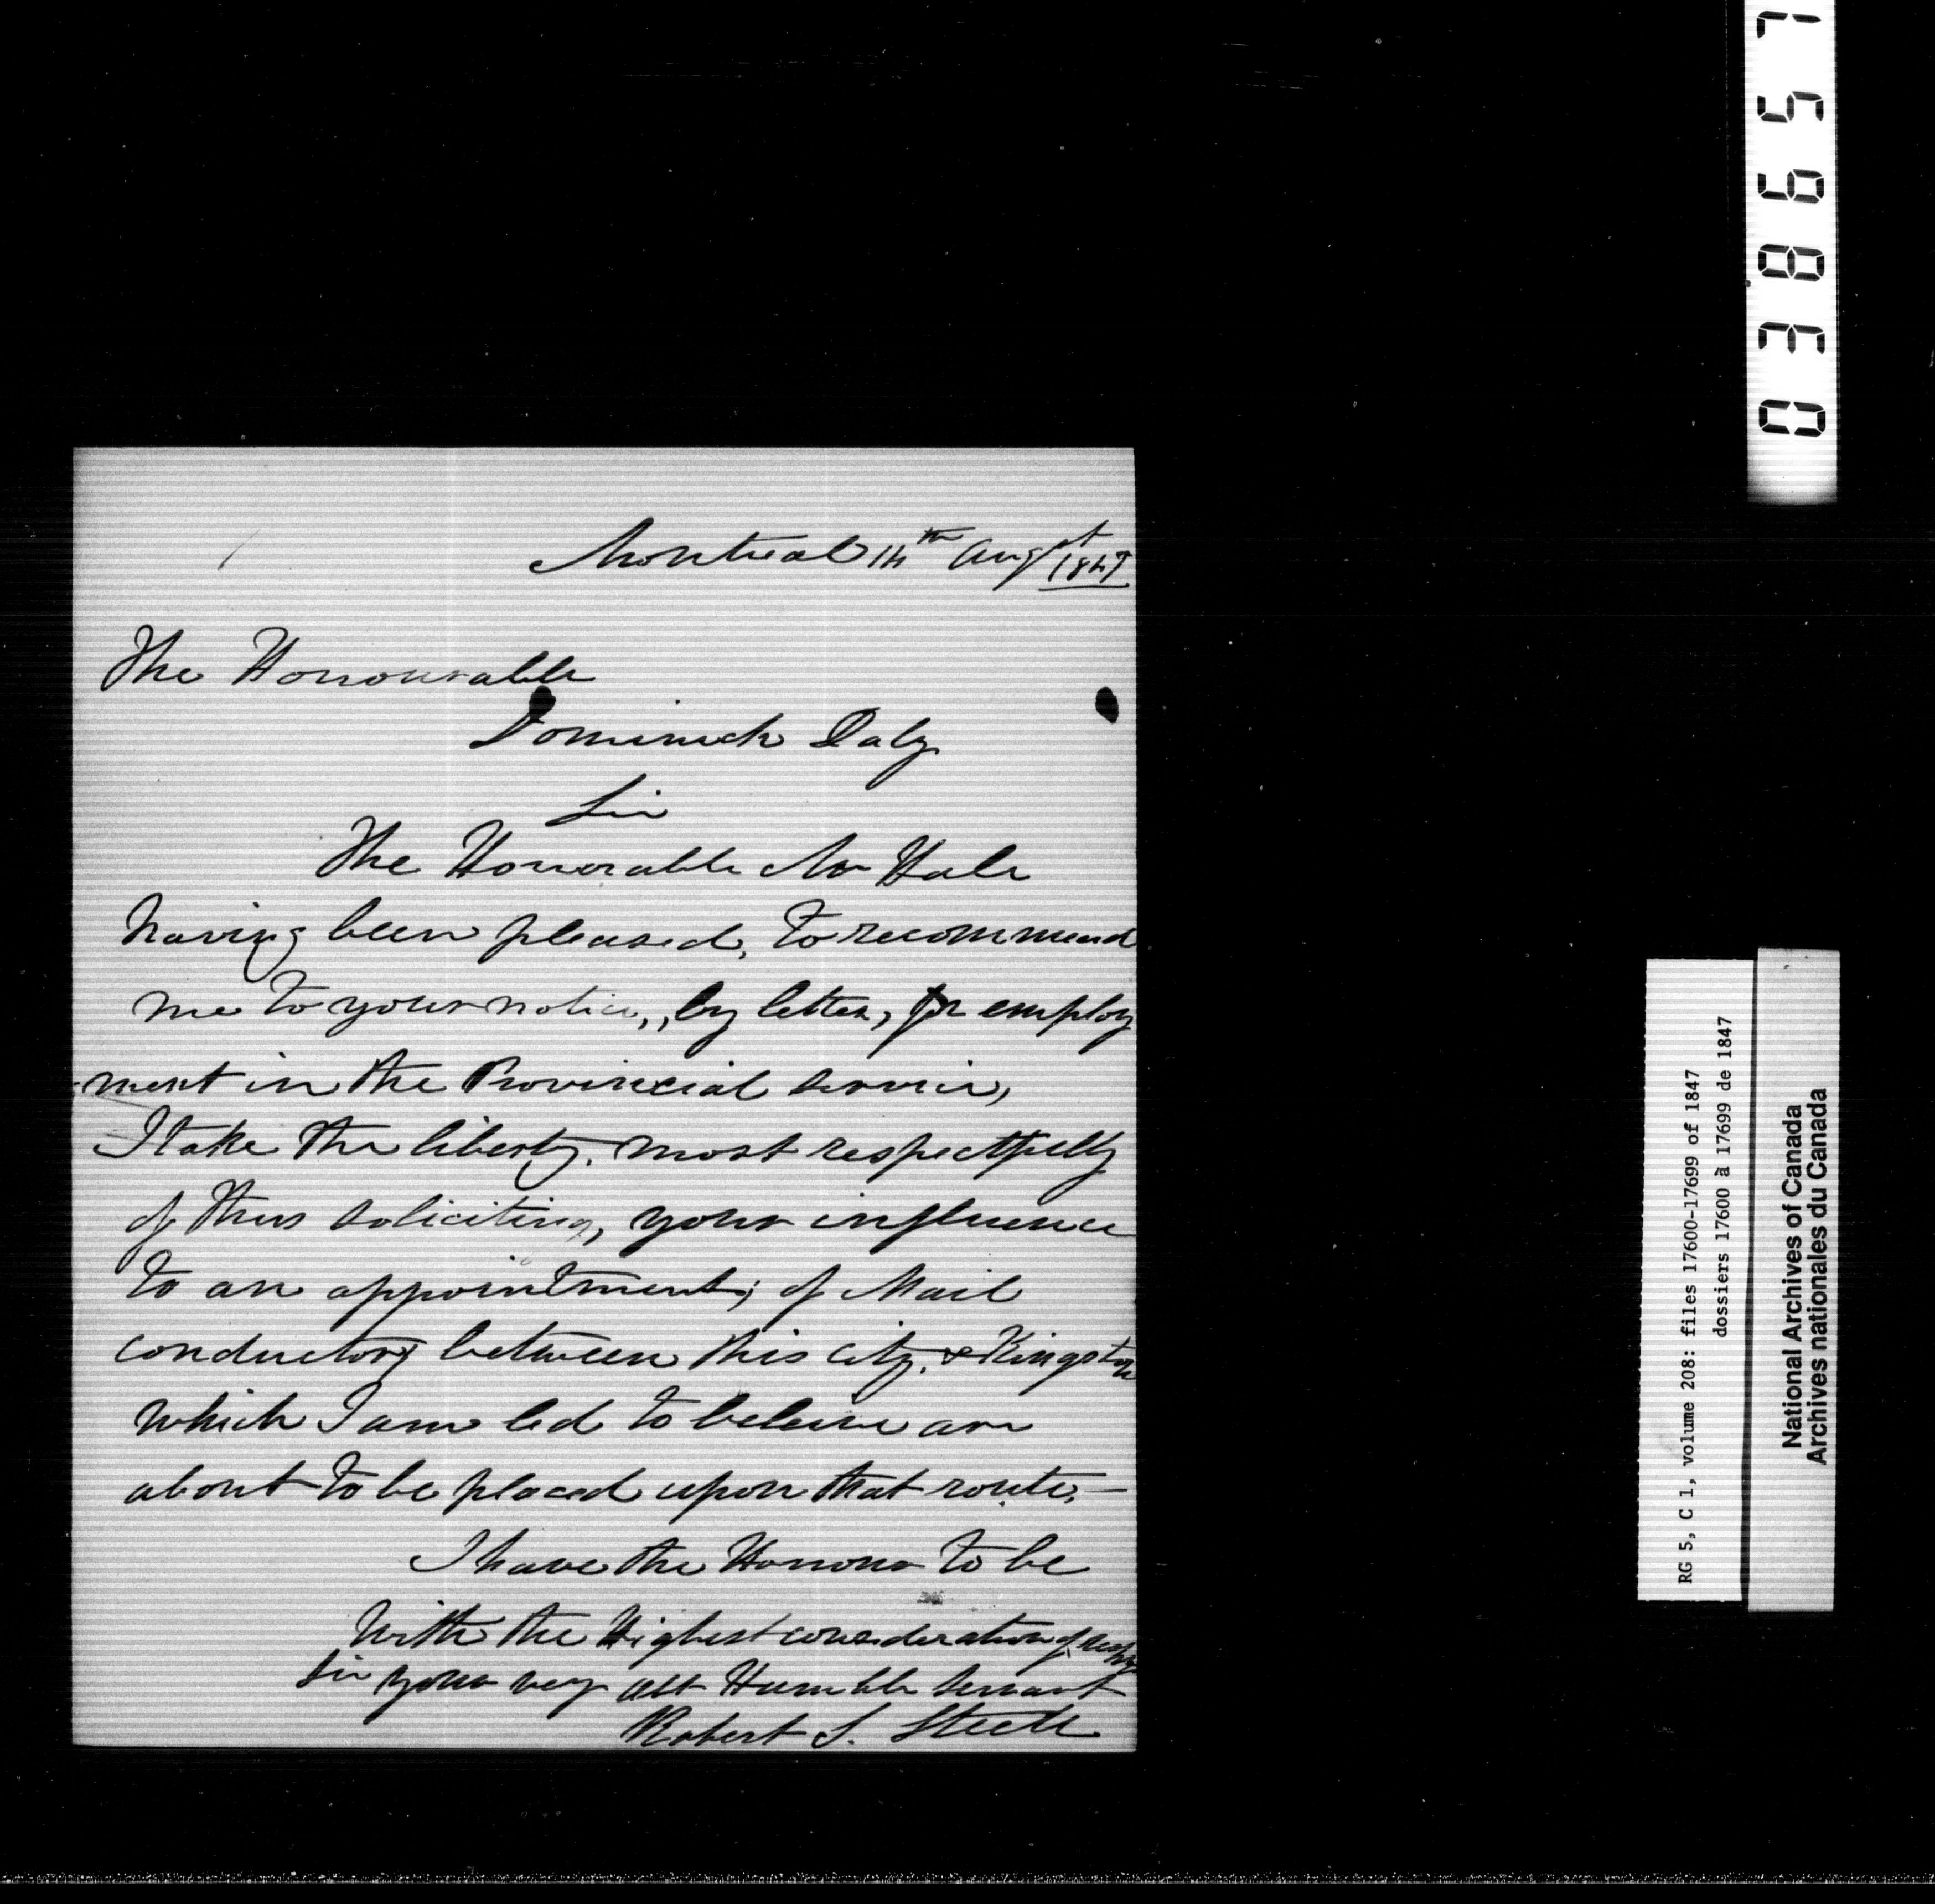 Montreal 14th Augst 1847
The Honourable
Dominick Daly
Sir
The Honorable Mr Hale
having been pleased, to recommend
me to your notice, by letter, for employ
-ment in the Provincial service,
I take the liberty, most respectfully
of thus soliciting, your influence
to an appointment, of Mail
conductors between this city, & Kingston
which I am led to beleive are
about to be placed upon that route,—
I have the Honour to be
With the Highest consideration of
Sir your very obt Humble servant
Robert S. Steele
038657
RG 5, C 1, volume 208: files 17600-17699 of 1847
dossiers 17600 à 17699 de 1847
National Archives of Canada
Archives nationales du Canada